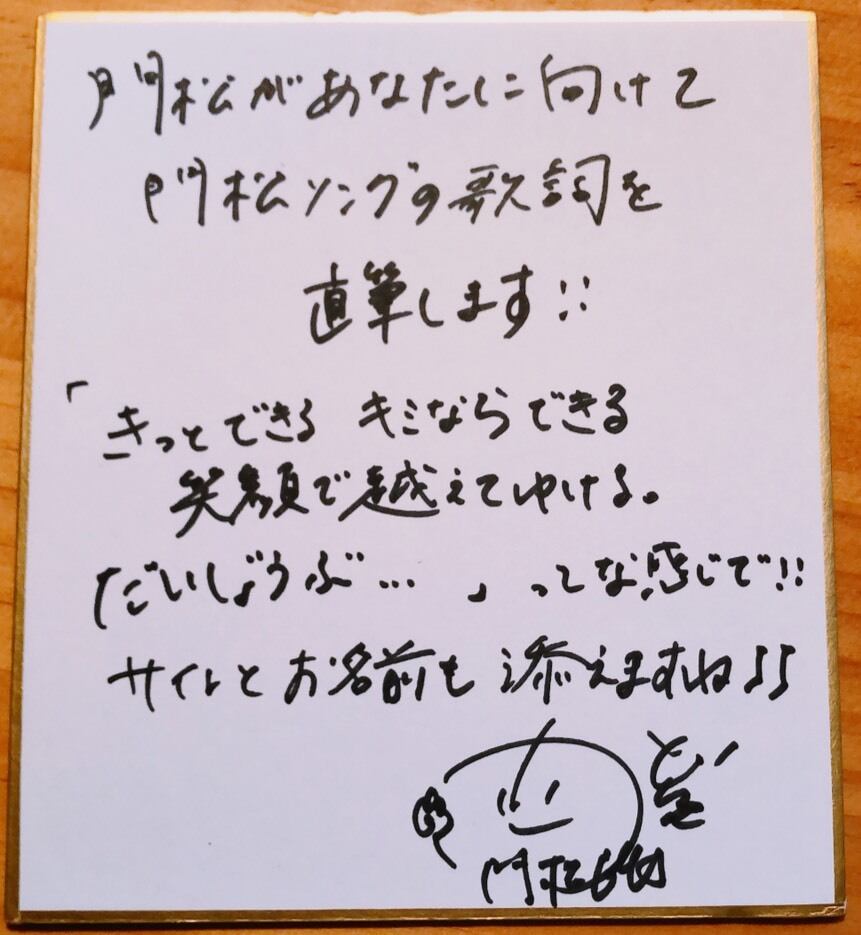 門松があなたに向けて
門松ソングの歌詞を
直筆します!!
「きっとできる キミならできる
笑顔で越えてゆける。
だいじょうぶ… 」ってな感じで!!
サインとお名前も 添えますね♪♪
門松